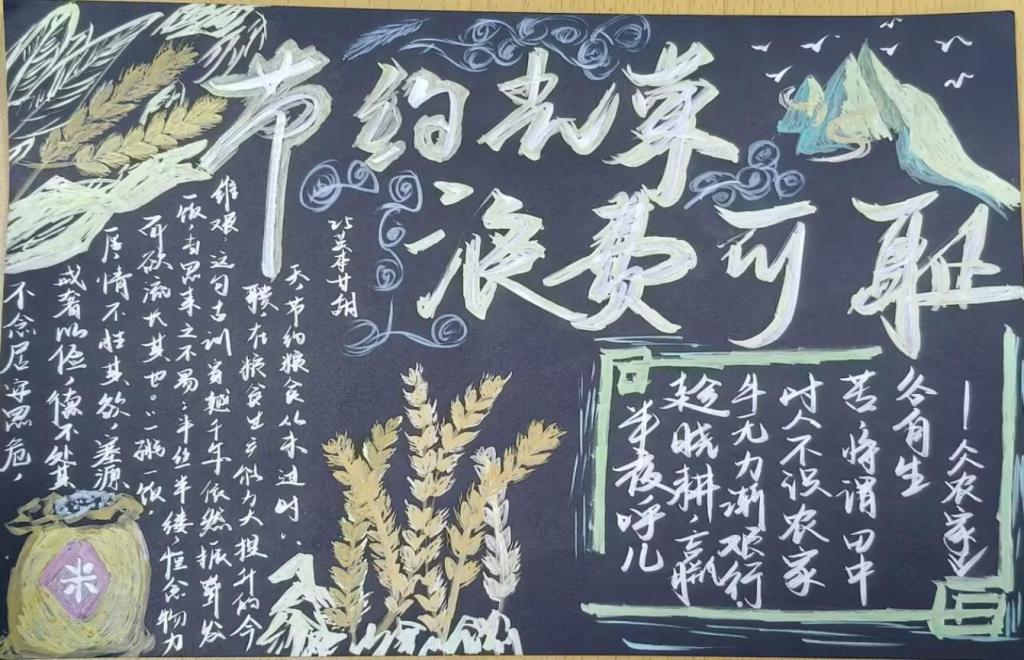 节约光荣
浪费可耻
不念居安思危,
戒奢以俭;德不处其
厚,情不胜其欲,塞源
而欲流长其也。"一粥一饭,
饭,当思来之不易;半丝半缕,恒念物力
维艰"这句古训穿越千年依然振聋发
聩,在粮食生产能力大提升的今
天节约粮食从未过时"。
米
半夜呼儿
趁晓耕,羸
牛无力渐艰行
时人不识农家
苦,将谓田中
谷自生
—《农家》